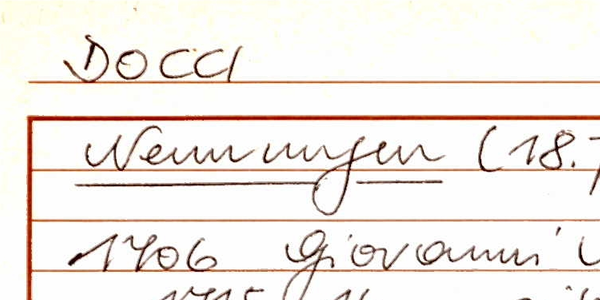 DOCCI
Nennungen (18.
1706 Giovanni
1715